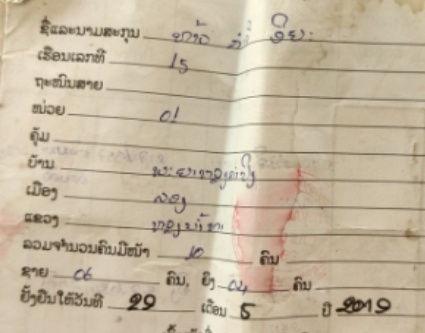 ຊື່ແລະນາມສະກຸນ ທ້າວ ຄຳ
ເຮືອນເລກທີ 15
ຖະໜົນສາຍ
ໜ່ວຍ 01
ຄຸ້ມ
ບ້ານ
ເມືອງ ລອງ
ແຂວງ ຫຼວງນໍ້າທາ
ລວມຈຳນວນຄົນມີໜ້າ 10 ຄົນ
ຊາຍ 06 ຄົນ, ຍິງ 04 ຄົນ
ຢັ້ງຢືນໃຫ້ວັນທີ 29 ເດືອນ 5 ປີ 2019